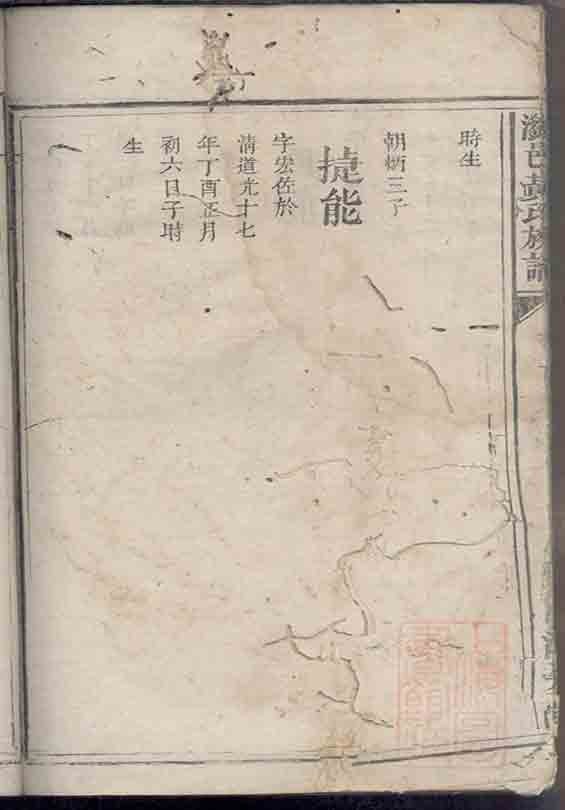 時生
朝炳三子
捷能
字宏佐於
清道光十七
年丁酉正月
初六日子時
生
邑黃氏族譜